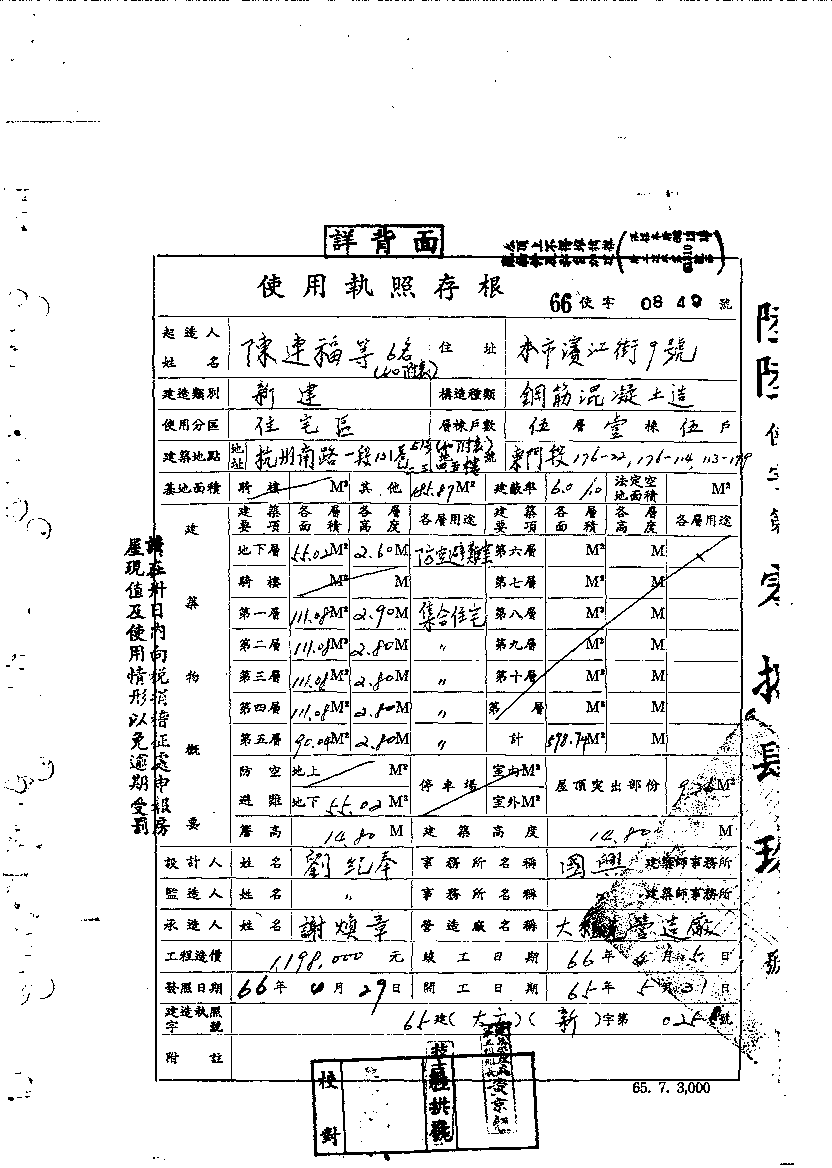 詳背面
使用執照存根
66使字0849號
起造人姓名 陳連福等6名 住址 本市濱江街9號
建造類別 新建 構造種類 鋼筋混凝土造
使用分區 住宅區 層棟戶數 伍層壹棟伍戶
建築地點 地址 杭州南路一段121巷 號 東門段176-22,176-114,113-179
基地面積 騎樓 M² 其他 185.87M² 建蔽率 60% 法定空地面積 M²
建築物概要
建築要項 各層面積 各層高度 各層用途 建築要項 各層面積 各層高度 各層用途
地下層 55.02M² 2.60M 防空避難室 第六層 M² M
騎樓 M² M 第七層 M² M
第一層 111.08M² 2.90M 集合住宅 第八層 M² M
第二層 111.08M² 2.80M 〃 第九層 M² M
第三層 111.08M² 2.80M 〃 第十層 M² M
第四層 111.08M² 2.80M 〃 第 層 M² M
第五層 90.04M² 2.80M 〃 計 M² M
防空避難 地上 M² 停車場 室內M² 屋頂突出部份 M²
地下 55.02 室外M²
簷高 14.80 M 建築高度 14.80 M
設計人 姓名 劉紀奉 事務所名稱 國興 建築師事務所
監造人 姓名 〃 事務所名稱 建築師事務所
承造人 姓名 謝煥章 營造廠名稱 營造廠
工程造價 1,198,000元 竣工日期 66年4月5日
發照日期 66年4月29日 開工日期 65年5月31日
建造執照字號 65建( )(新)字第 號
附註
65. 7. 3,000
校對
請在卅日內向稅捐稽征處申報房
屋現值及使用情形以免逾期受罰